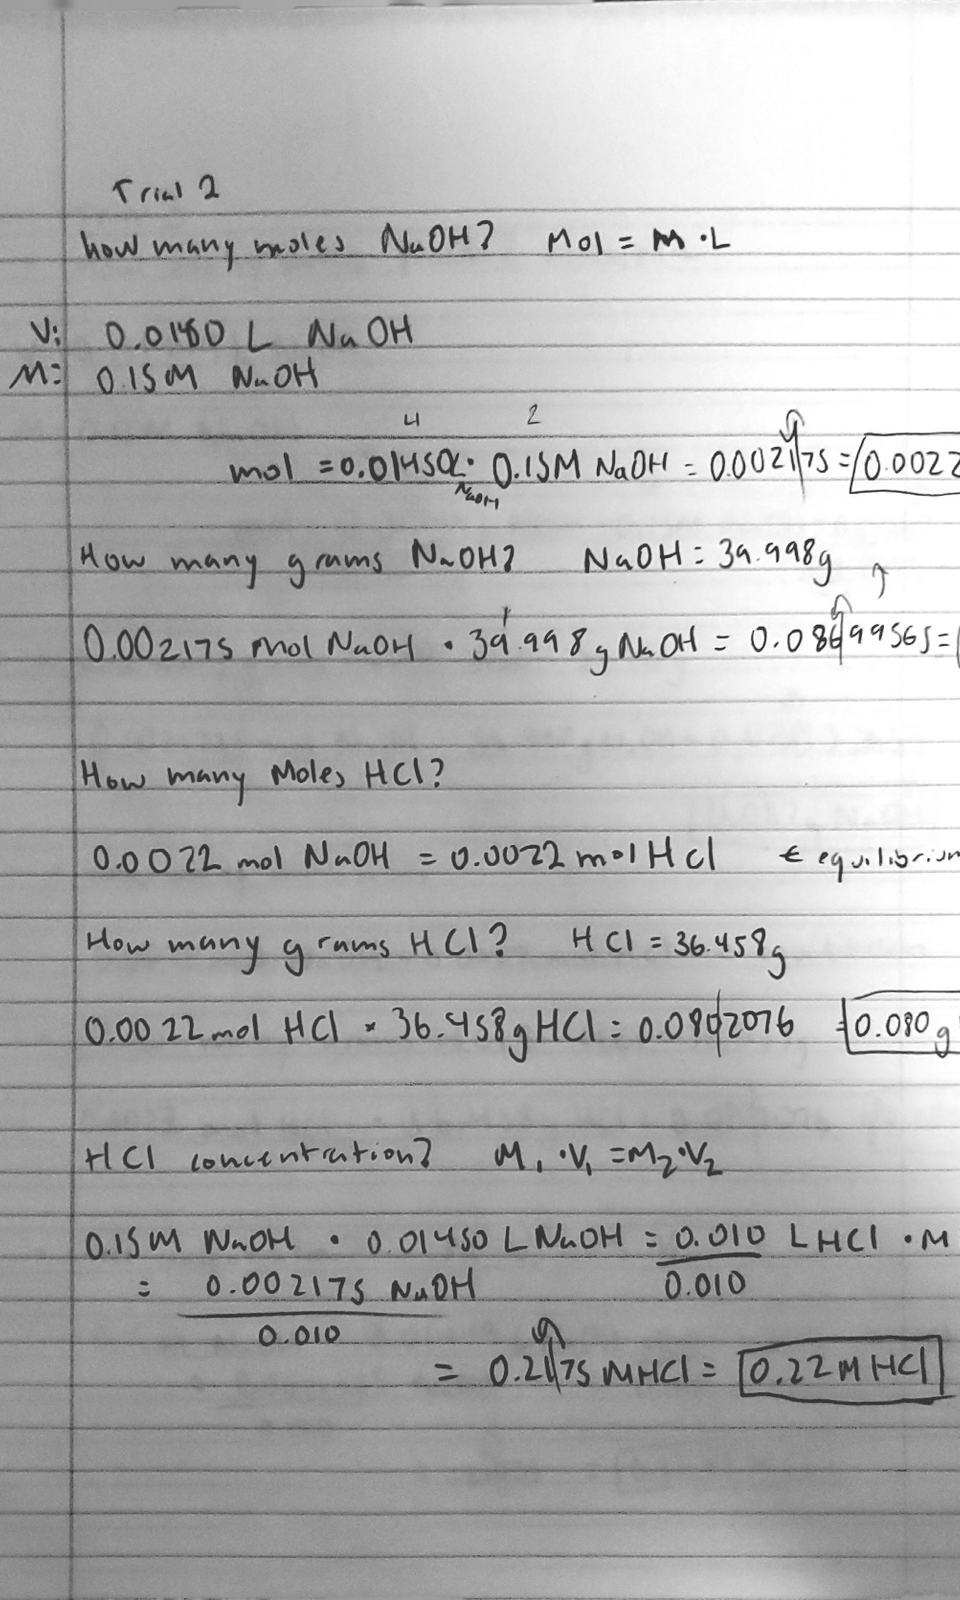 Trial 2
how many moles NaOH? Mol = M · L
V: 0.01450 L NaOH
M: 0.15M NaOH
4 2
mol = 0.01450L · 0.15M NaOH = 0.002175 = 0.0022
NaOH
How many grams NaOH? NaOH = 39.998g
0.002175 mol NaOH · 39.998g NaOH = 0.08699565 =
How many Moles HCl?
0.0022 mol NaOH = 0.0022 mol HCl ← equilibrium
How many grams HCl? HCl = 36.458g
0.0022 mol HCl × 36.458g HCl = 0.0802076 = 0.080g
HCl concentration? M₁ · V₁ = M₂ · V₂
0.15M NaOH · 0.01450 L NaOH = 0.010 L HCl · M
= 0.002175 NaOH 0.010
0.010
= 0.2175 MHCl = 0.22M HCl